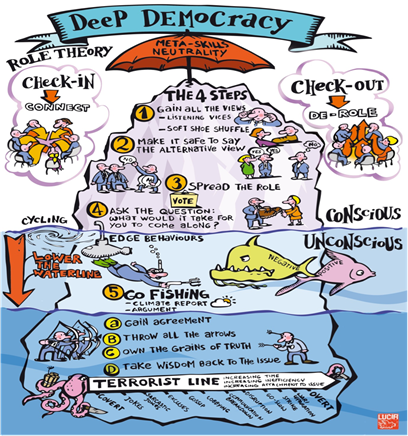 DeeP DEMOCRACY
META-SKILLS
NEUTRALITY
ROLE THEORY
CHECK-IN
CONNECT
CHECK-OUT
DE-ROLE
THE 4 STEPS
1 GAIN ALL THE VIEWS
- LISTENING VICES
- SOFT SHOE SHUFFLE
2 MAKE IT SAFE TO SAY
THE ALTERNATIVE VIEW
NO
YES
YES
NO
3 SPREAD THE ROLE
VOTE
4 ASK THE QUESTION:
WHAT WOULD IT TAKE FOR
YOU TO COME ALONG?
CYCLING
CONSCIOUS
EDGE BEHAVIOURS
UNCONSCIOUS
LOWER THE
WATERLINE
NEGATIVE
POSITIVE
5 GO FISHING
- CLIMATE REPORT
- ARGUMENT
A GAIN AGREEMENT
B THROW ALL THE ARROWS
C OWN THE GRAINS OF TRUTH
D TAKE WISDOM BACK TO THE ISSUE
TERRORIST LINE
INCREASING TIME
INCREASING INEFFICIENCY
INCREASING ATTACHMENT TO ISSUE
COVERT
JOKES
SARCASTIC
JOKES
EXCUSES
GOSSIP
DISRUPTION
GO-SLOW
STRIKE
OVERT
LUCID